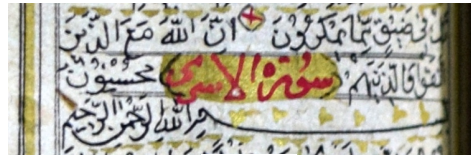 فی ضیق مما یمکرون ان الله مع الذین
تقوا والذین هم محسنون
سورة الاسری
بسم الله الرحمن الرحیم